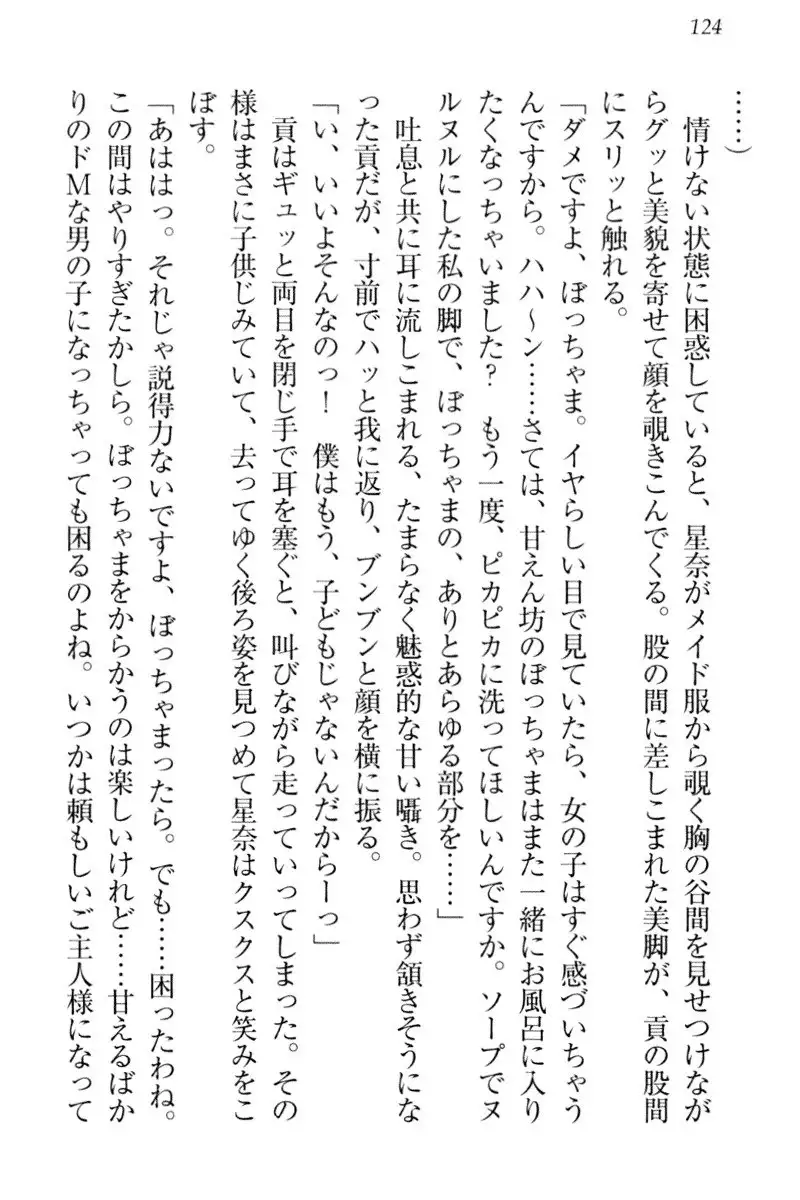 124
……)
　情けない状態に困惑していると、星奈がメイド服から覗く胸の谷間を見せつけなが
らグッと美貌を寄せて顔を覗きこんでくる。股の間に差しこまれた美脚が、貢の股間
にスリッと触れる。
「ダメですよ、ぼっちゃま。イヤらしい目で見ていたら、女の子はすぐ感づいちゃう
んですから。ハハ～ン……さては、甘えん坊のぼっちゃまはまた一緒にお風呂に入り
たくなっちゃいました？　もう一度、ピカピカに洗ってほしいんですか。ソープでヌ
ルヌルにした私の脚で、ぼっちゃまの、ありとあらゆる部分を……」
　吐息と共に耳に流しこまれる、たまらなく魅惑的な甘い囁き。思わず頷きそうにな
った貢だが、寸前でハッと我に返り、ブンブンと顔を横に振る。
「い、いいよそんなのっ！　僕はもう、子どもじゃないんだからーっ」
　貢はギュッと両目を閉じ手で耳を塞ぐと、叫びながら走っていってしまった。その
様はまさに子供じみていて、去ってゆく後ろ姿を見つめて星奈はクスクスと笑みをこ
ぼす。
「あははっ。それじゃ説得力ないですよ、ぼっちゃまったら。でも……困ったわね。
この間はやりすぎたかしら。ぼっちゃまをからかうのは楽しいけれど……甘えるばか
りのドMな男の子になっちゃっても困るのよね。いつかは頼もしいご主人様になって